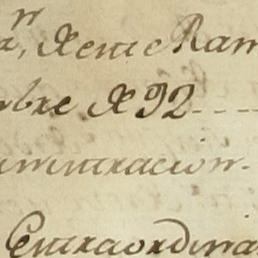 de este Ram
bre de 92
ministracion.
Extraordina